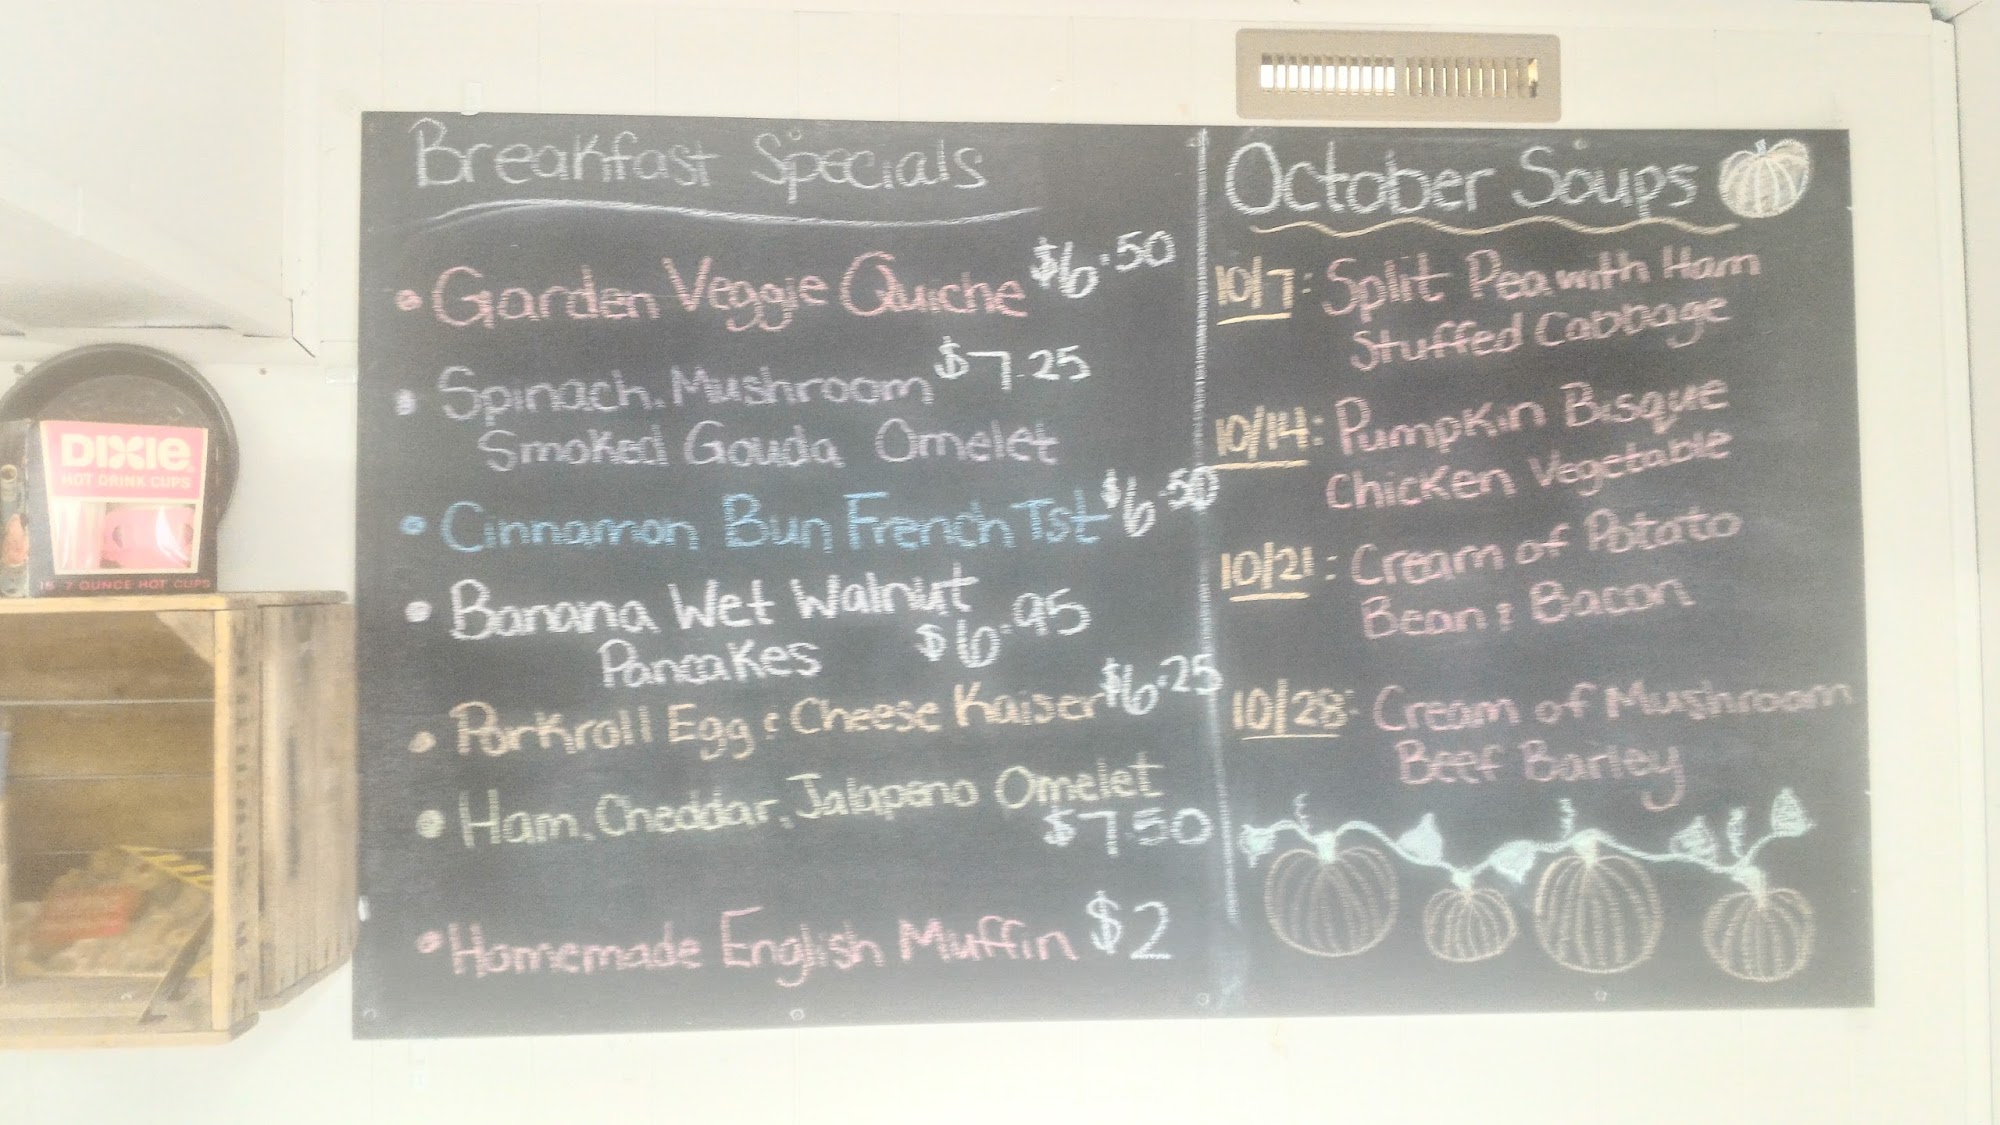 Breakfast Specials
• Garden Veggie Quiche $6.50
• Spinach, Mushroom $7.25
Smoked Gouda Omelet
• Cinnamon Bun French Tst $6.50
• Banana Wet Walnut
Pancakes $6.95
• Porkroll Egg & Cheese Kaiser $6.25
• Ham, Cheddar, Jalapeno Omelet
$7.50
• Homemade English Muffin $2
October Soups
10/7: Split Pea with Ham
Stuffed Cabbage
10/14: Pumpkin Bisque
Chicken Vegetable
10/21: Cream of Potato
Bean & Bacon
10/28: Cream of Mushroom
Beef Barley
DIXIE
HOT DRINK CUPS
7 OUNCE HOT CUPS